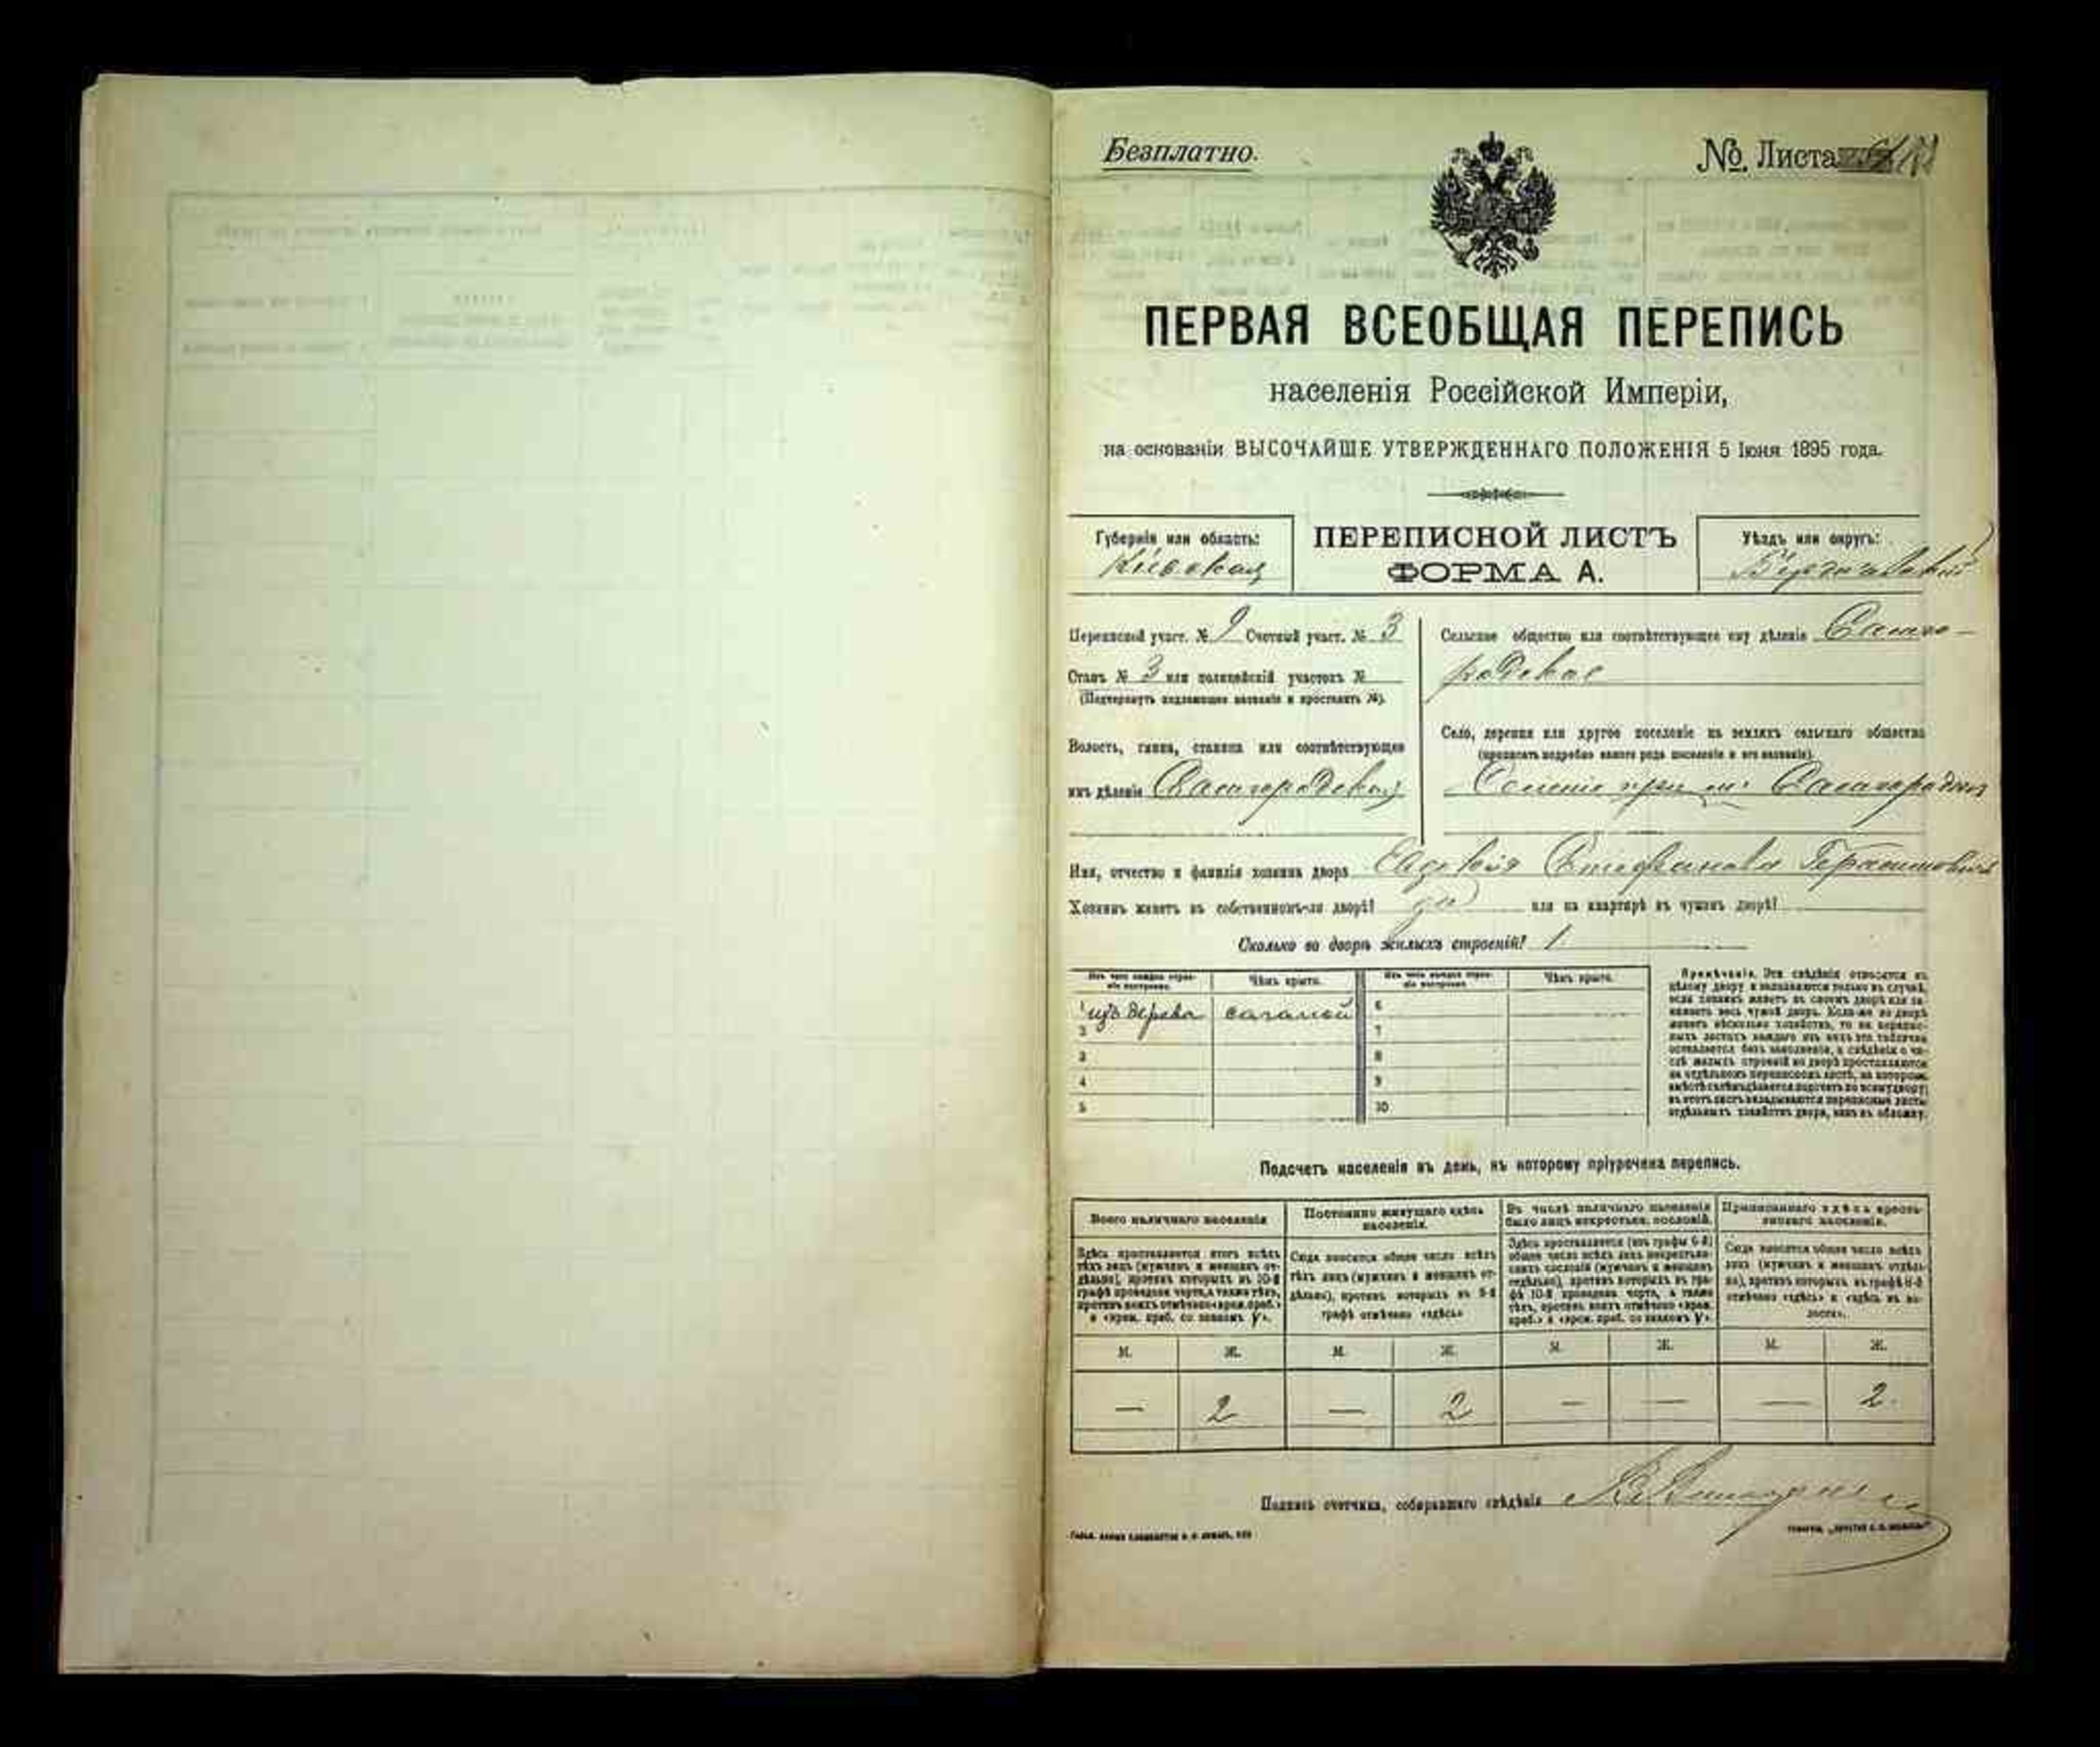 Безплатно.
№ Листа
ПЕРВАЯ ВСЕОБЩАЯ ПЕРЕПИСЬ
населенія Россійской Имперіи,
на основаніи ВЫСОЧАЙШЕ УТВЕРЖДЕННАГО ПОЛОЖЕНІЯ 5 Іюня 1895 года.
Губернія или область:
Кіевская
ПЕРЕПИСНОЙ ЛИСТЪ
ФОРМА А.
Уѣздъ или округъ:
Бердичевскій
Переписной участ. № 9 Счетный участ. № 3
Станъ № 3 или полицейскій участокъ №
(Подчеркнуть подлежащее названіе и проставить №).
Волость, гмина, станица или соотвѣтствующее
имъ дѣленіе Самгородская
Сельское общество или соотвѣтствующее ему дѣленіе Самго-
родское
Село, деревня или другое поселеніе на земляхъ сельскаго общества
(прописать подробно какого рода поселеніе и его названіе).
Селеніе при м. Самгородокъ
Имя, отчество и фамилія хозяина двора Евдокія Стефанова
Хозяинъ живетъ въ собственномъ-ли дворѣ? да или на квартирѣ въ чужомъ дворѣ?
Сколько во дворѣ жилыхъ строеній? 1
Изъ чего каждое строе-
ніе построено.
Чѣмъ крыто.
Изъ чего каждое строе-
ніе построено.
Чѣмъ крыто.
1 изъ дерева соломой 6
2 7
3 8
4 9
5 10
Примѣчаніе. Эти свѣдѣнія относятся къ
цѣлому двору и заполняются только въ случаѣ,
если хозяинъ живетъ въ своемъ дворѣ или за-
нимаетъ весь чужой дворъ. Если-же во дворѣ
живетъ нѣсколько хозяйствъ, то на перепис-
ныхъ листахъ каждаго изъ нихъ эта табличка
оставляется безъ заполненія, а свѣдѣнія о чи-
слѣ жилыхъ строеній во дворѣ проставляются
на отдѣльномъ переписномъ листѣ, на которомъ
въ этотъ листъ вкладываются переписные листы
отдѣльныхъ хозяйствъ двора, какъ въ обложку.
Подсчетъ населенія въ день, къ которому пріурочена перепись.
Всего наличнаго населенія
Здѣсь проставляется итогъ всѣхъ
тѣхъ лицъ (мужчинъ и женщинъ от-
дѣльно), противъ которыхъ въ 10-й
графѣ проведена черта, а также тѣхъ,
противъ коихъ отмѣчено «врем. преб.»
и «врем. преб. со знакомъ V».
Постоянно живущаго здѣсь
населенія.
Сюда вносится общее число всѣхъ
тѣхъ лицъ (мужчинъ и женщинъ от-
дѣльно), противъ которыхъ въ 9-й
графѣ отмѣчено «здѣсь»
Въ числѣ наличнаго населенія
было лицъ некрестьян. сословій.
Здѣсь проставляется (изъ графы 6-й)
общее число всѣхъ лицъ некрестьян-
скихъ сословій (мужчинъ и женщинъ
отдѣльно), противъ которыхъ въ гра-
фѣ 10-й проведена черта, а также
тѣхъ, противъ коихъ отмѣчено «врем.
преб.» и «врем. преб. со знакомъ V».
Приписаннаго здѣсь кресть-
янскаго населенія.
Сюда вносится общее число всѣхъ
лицъ (мужчинъ и женщинъ отдѣль-
но), противъ которыхъ въ графѣ 8-й
отмѣчено «здѣсь» и «здѣсь въ во-
лости».
М. Ж. М. Ж. М. Ж. М. Ж.
— 2 — 2 — — — 2.
Подпись счетчика, собиравшаго свѣдѣнія